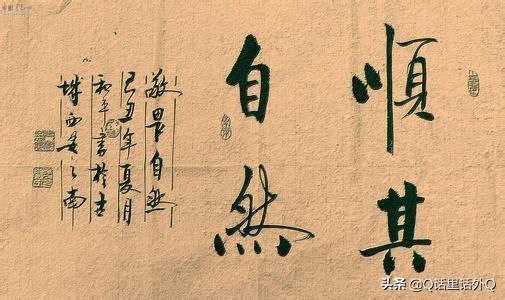 順其
自然
敬畏自然
己丑年夏月
和平書於古
城西安之南
头条 @Q话里话外Q